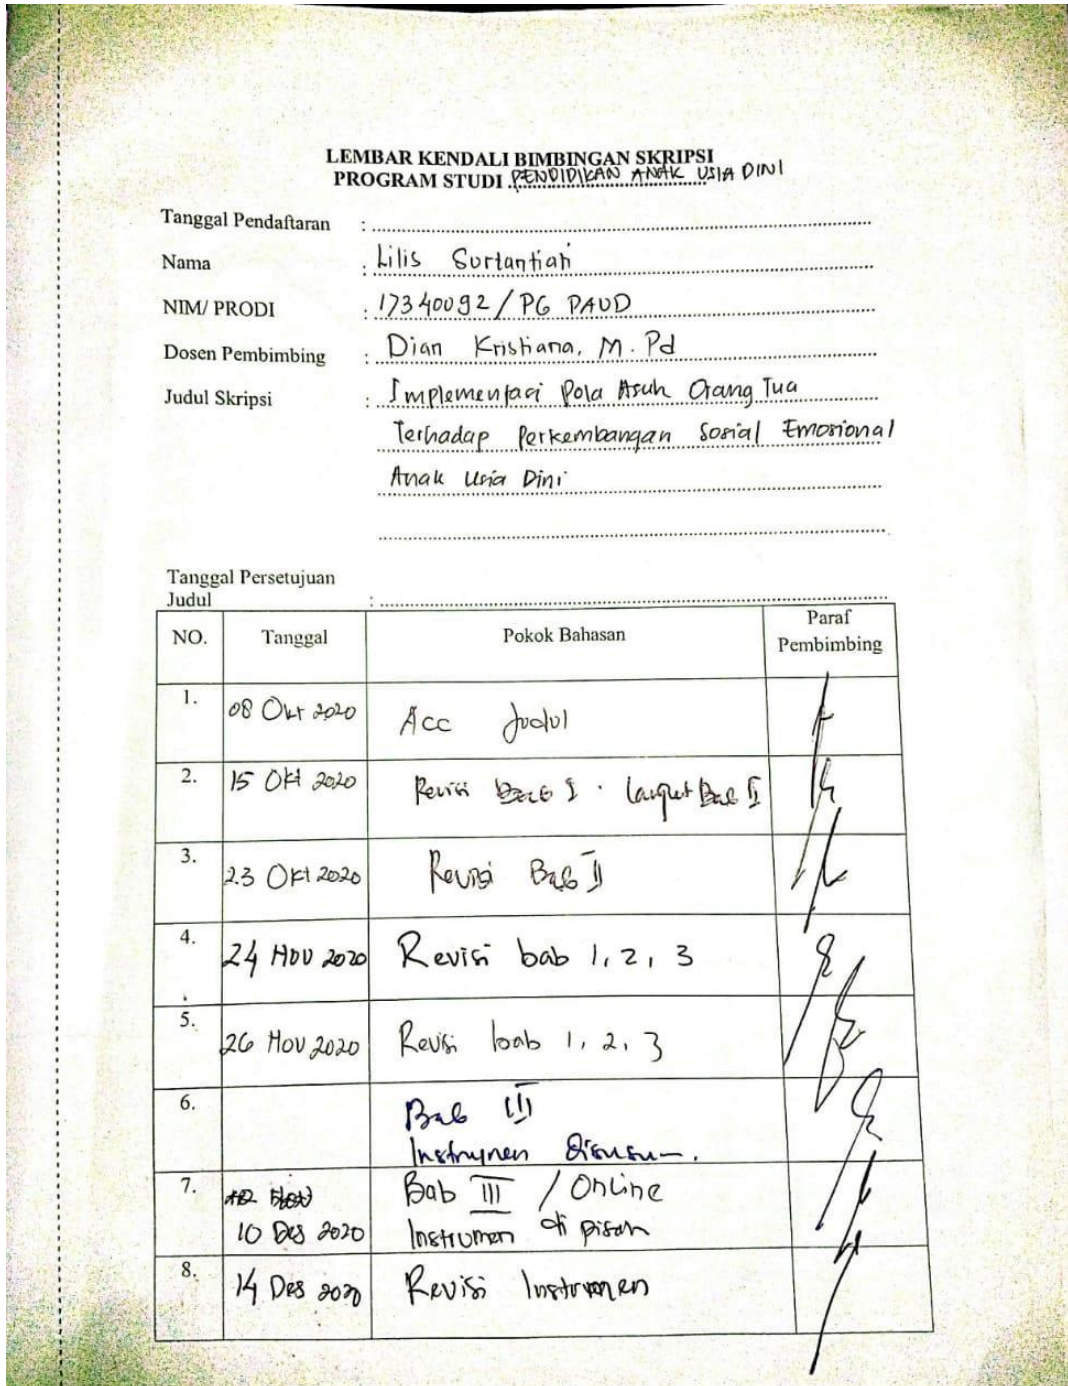 LEMBAR KENDALI BIMBINGAN SKRIPSI
PROGRAM STUDI PENDIDIKAN ANAK USIA DINI
Tanggal Pendaftaran :
Nama : Lilis Surtantiah
NIM/ PRODI : 17340092 / PG PAUD
Dosen Pembimbing : Dian Kristiana, M. Pd
Judul Skripsi : Implementasi Pola Asuh Orang Tua
Terhadap Perkembangan Sosial Emosional
Anak Usia Dini
Tanggal Persetujuan
Judul :
NO. Tanggal Pokok Bahasan Paraf
Pembimbing
1. 08 Okt 2020 Acc Judul
2. 15 Okt 2020 Revisi Bab I . Lanjut Bab II
3. 23 Okt 2020 Revisi Bab II
4. 24 Nov 2020 Revisi bab 1, 2, 3
5. 26 Nov 2020 Revisi bab 1, 2, 3
6. Bab III
Instrumen disusun.
7. Bab III / Online
10 Des 2020 Instrumen di pisah
8. 14 Des 2020 Revisi Instrumen